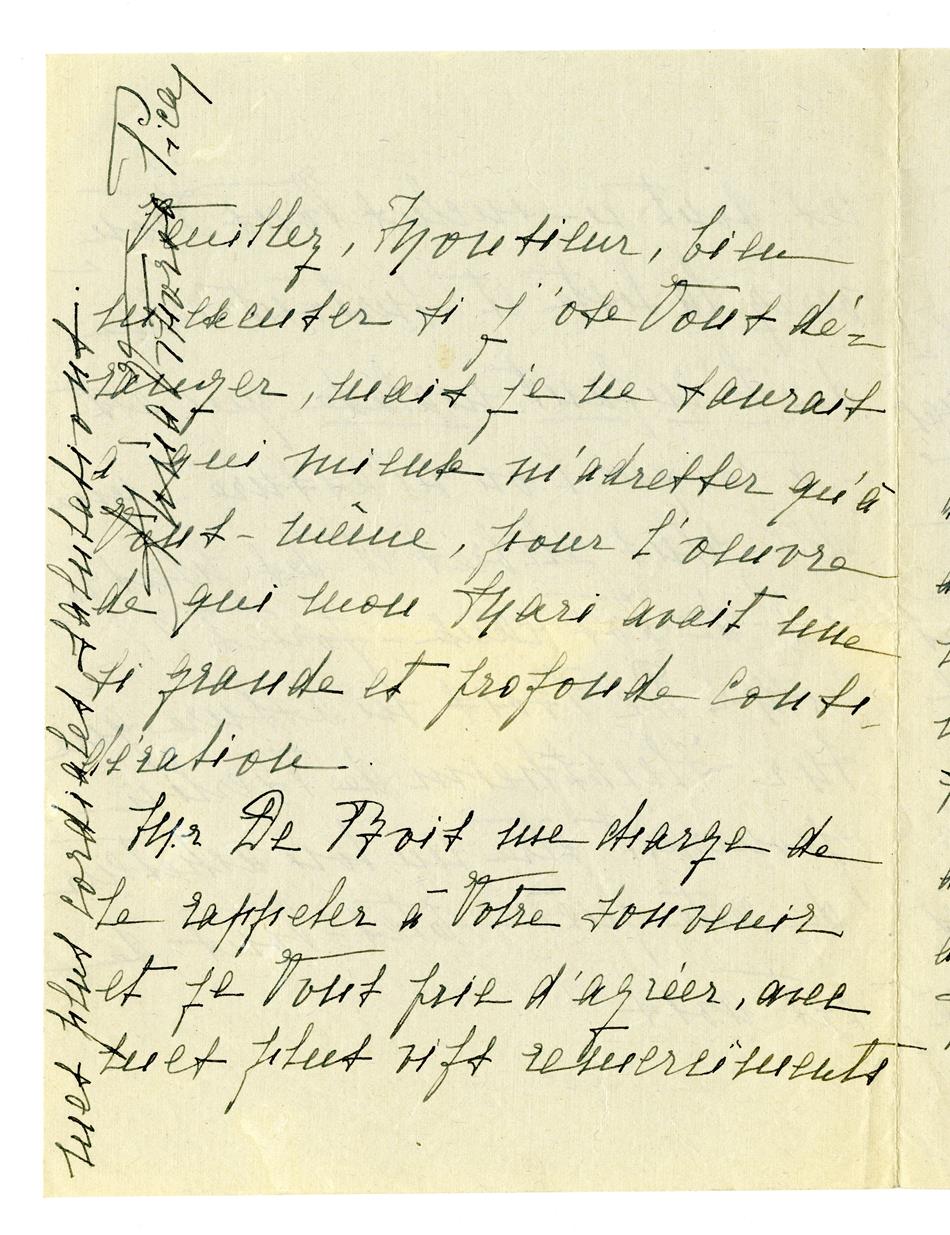 Veuillez, Monsieur, bien
m'excuser si j'ose Vous dé-
ranger, mais je ne saurais
à qui mieux m'adresser qu'à
Vous-même, pour l'œuvre
de qui mon Mari avait une
si grande et profonde consi-
dération.
Mr De Bois me charge de
le rappeler à Votre souvenir
et je Vous prie d'agréer, avec
mes plus vifs remerciments
mes plus cordiales salutations.